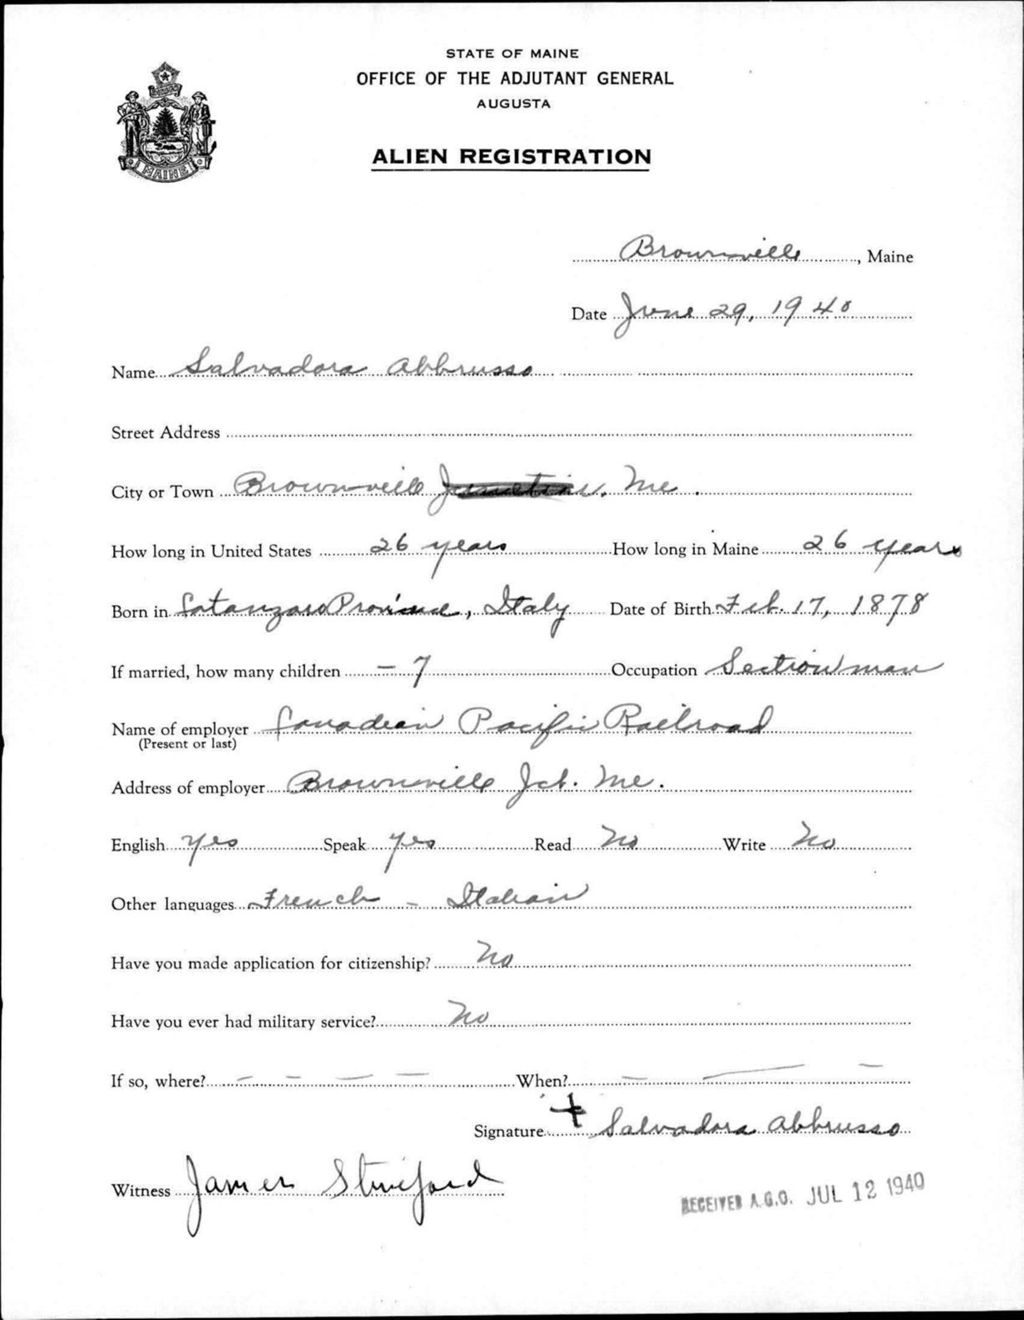 STATE OF MAINE
OFFICE OF THE ADJUTANT GENERAL
AUGUSTA
ALIEN REGISTRATION
MAINE
Brownville, Maine
Date June 29, 1940
Name Salvadora Abbrusso
Street Address
City or Town Brownville Junction, Me.
How long in United States 26 years How long in Maine 26 years
Born in Catanzaro Province, Italy Date of Birth Feb. 17, 1878
If married, how many children – 7 Occupation Sectionman
Name of employer Canadian Pacific Railroad
(Present or last)
Address of employer Brownville Jct. Me.
English yes Speak yes Read No Write No
Other languages French – Italian
Have you made application for citizenship? No
Have you ever had military service? No
If so, where? – – – – When? – – –
Signature + Salvadora Abbrusso
Witness James
RECEIVED A.G.O. JUL 12 1940